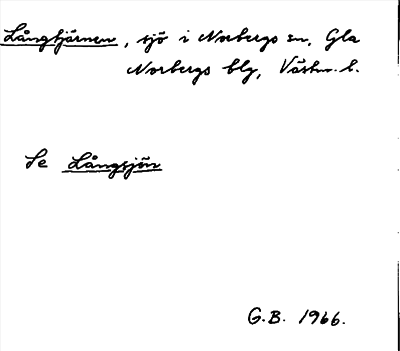 Långtjärnen, sjö i Norbergs sn, Gla
Norbergs blg, Västm. l.
Se Långsjön
G.B. 1966.